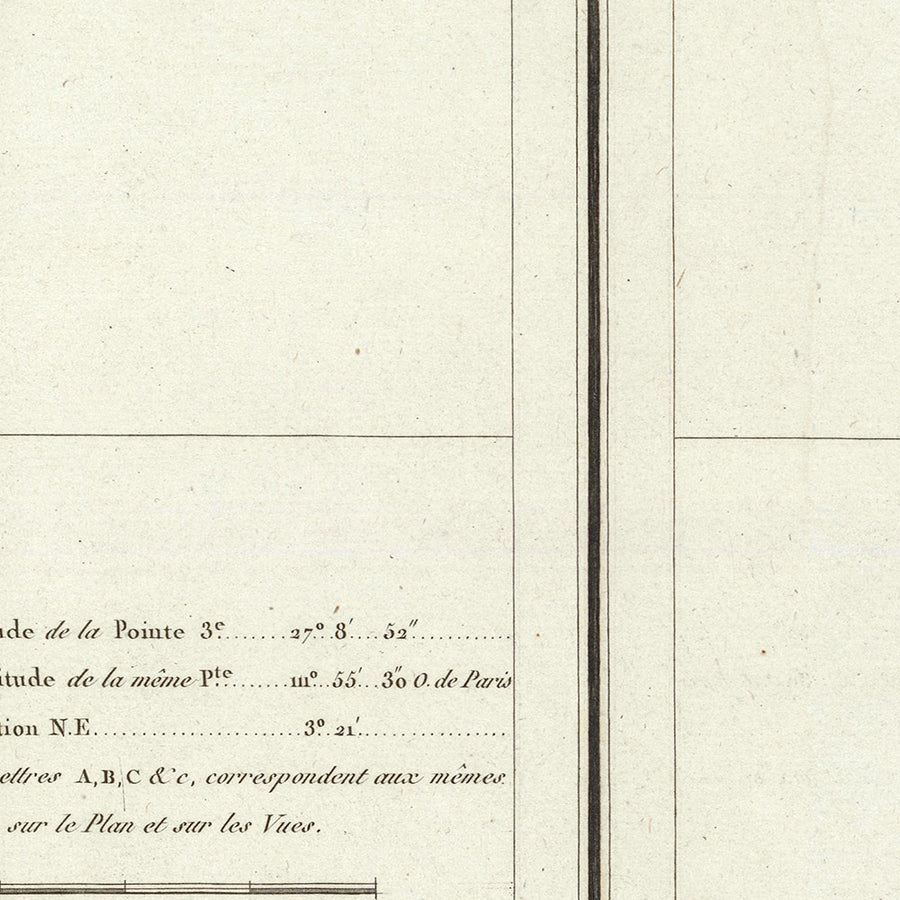 ude de la Pointe 3e.......27º..8'....52"............
itude de la même Pte.......111º..55'...3"0 O. de Paris
tion N.E........................3º..21'..................
ettres A, B, C &c, correspondent aux mêmes
sur le Plan et sur les Vues.